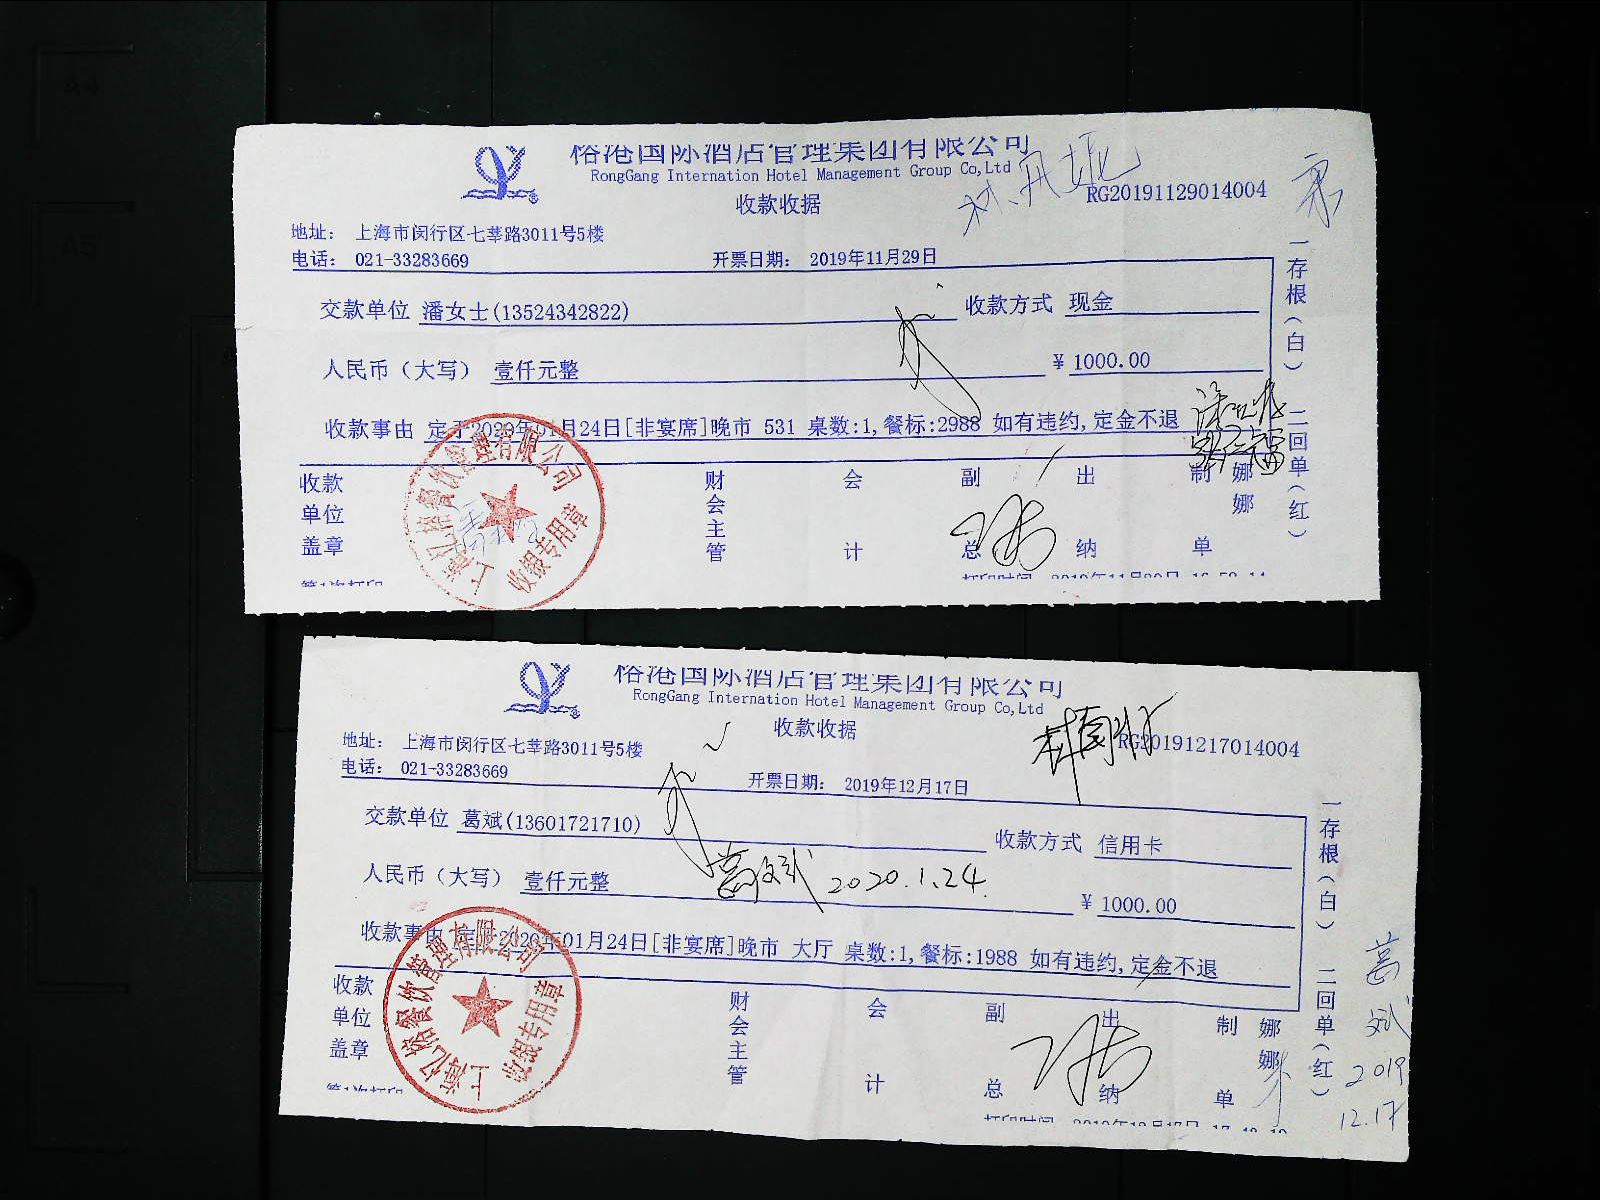 裕港国际酒店管理集团有限公司
RongGang Internation Hotel Management Group Co,Ltd
收款收据
RG20191129014004
地址： 上海市闵行区七莘路3011号5楼
电话： 021-33283669
开票日期： 2019年11月29日
交款单位 潘女士(13524342822)
收款方式 现金
人民币（大写） 壹仟元整
￥ 1000.00
收款事由 定于2020年01月24日[非宴席]晚市 531 桌数:1,餐标:2988 如有违约,定金不退
收款单位盖章
财会主管
会计
副总
出纳
制单
娜娜
一存根（白）
二回单（红）
上海亿裕餐饮管理有限公司
收银专用章
第1次打印
打印时间 2019年11月29日 16:52:14
裕港国际酒店管理集团有限公司
RongGang Internation Hotel Management Group Co,Ltd
收款收据
RG20191217014004
地址： 上海市闵行区七莘路3011号5楼
电话： 021-33283669
开票日期： 2019年12月17日
交款单位 葛斌(13601721710)
收款方式 信用卡
人民币（大写） 壹仟元整
葛斌 2020.1.24.
￥ 1000.00
收款事由 定于2020年01月24日[非宴席]晚市 大厅 桌数:1,餐标:1988 如有违约,定金不退
收款单位盖章
财会主管
会计
副总
出纳
制单
娜娜
一存根（白）
二回单（红）
上海亿裕餐饮管理有限公司
收银专用章
葛斌
2019
12.17
第1次打印
打印时间 2019年12月17日